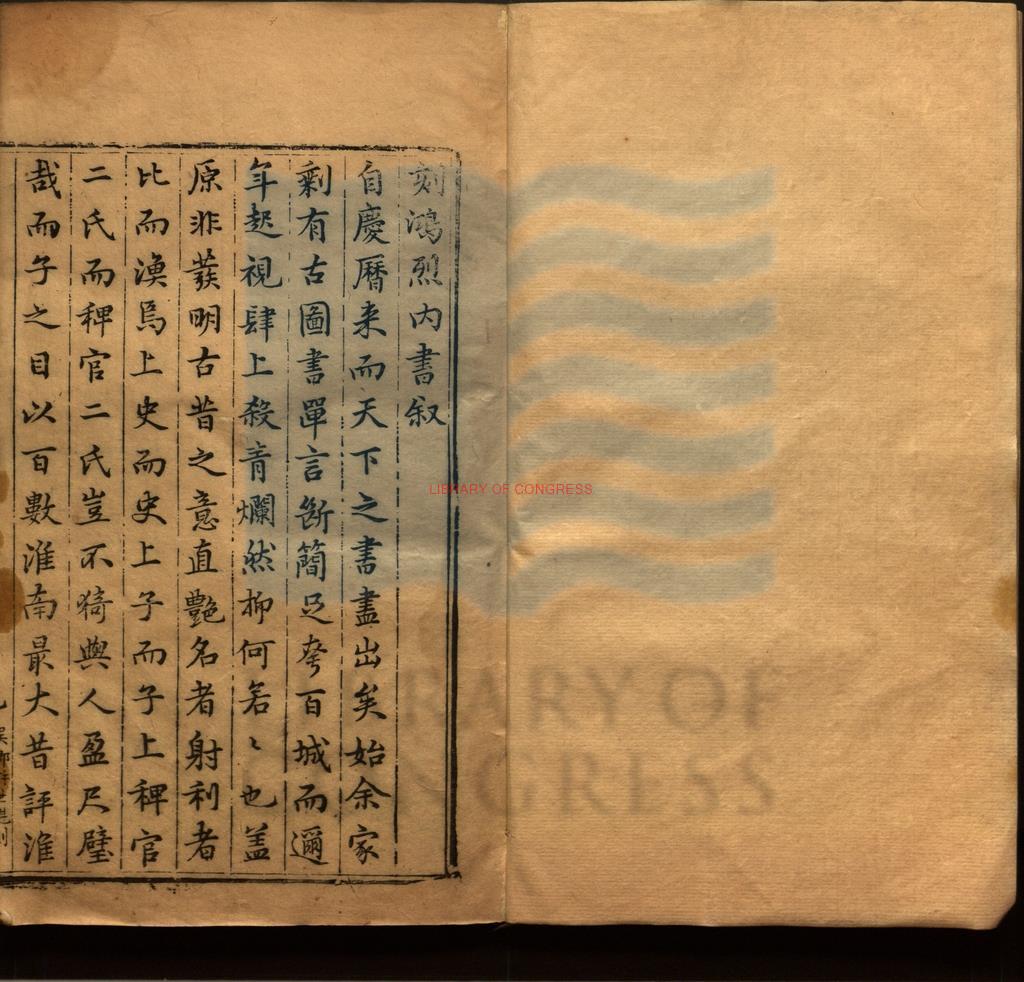 刻鴻烈内書叙
自慶曆来而天下之書盡出矣始余家
剩有古圖書單言斷簡足夸百城而邇
年起視肆上殺青爛然抑何若〻也盖
原非發明古昔之意直艷名者射利者
比而漁焉上史而史上子而子上稗官
二氏而稗官二氏豈不猗與人盈尺璧
哉而子之目以百數淮南最大昔評淮
LIBRARY OF CONGRESS
LIBRARY OF
CONGRESS